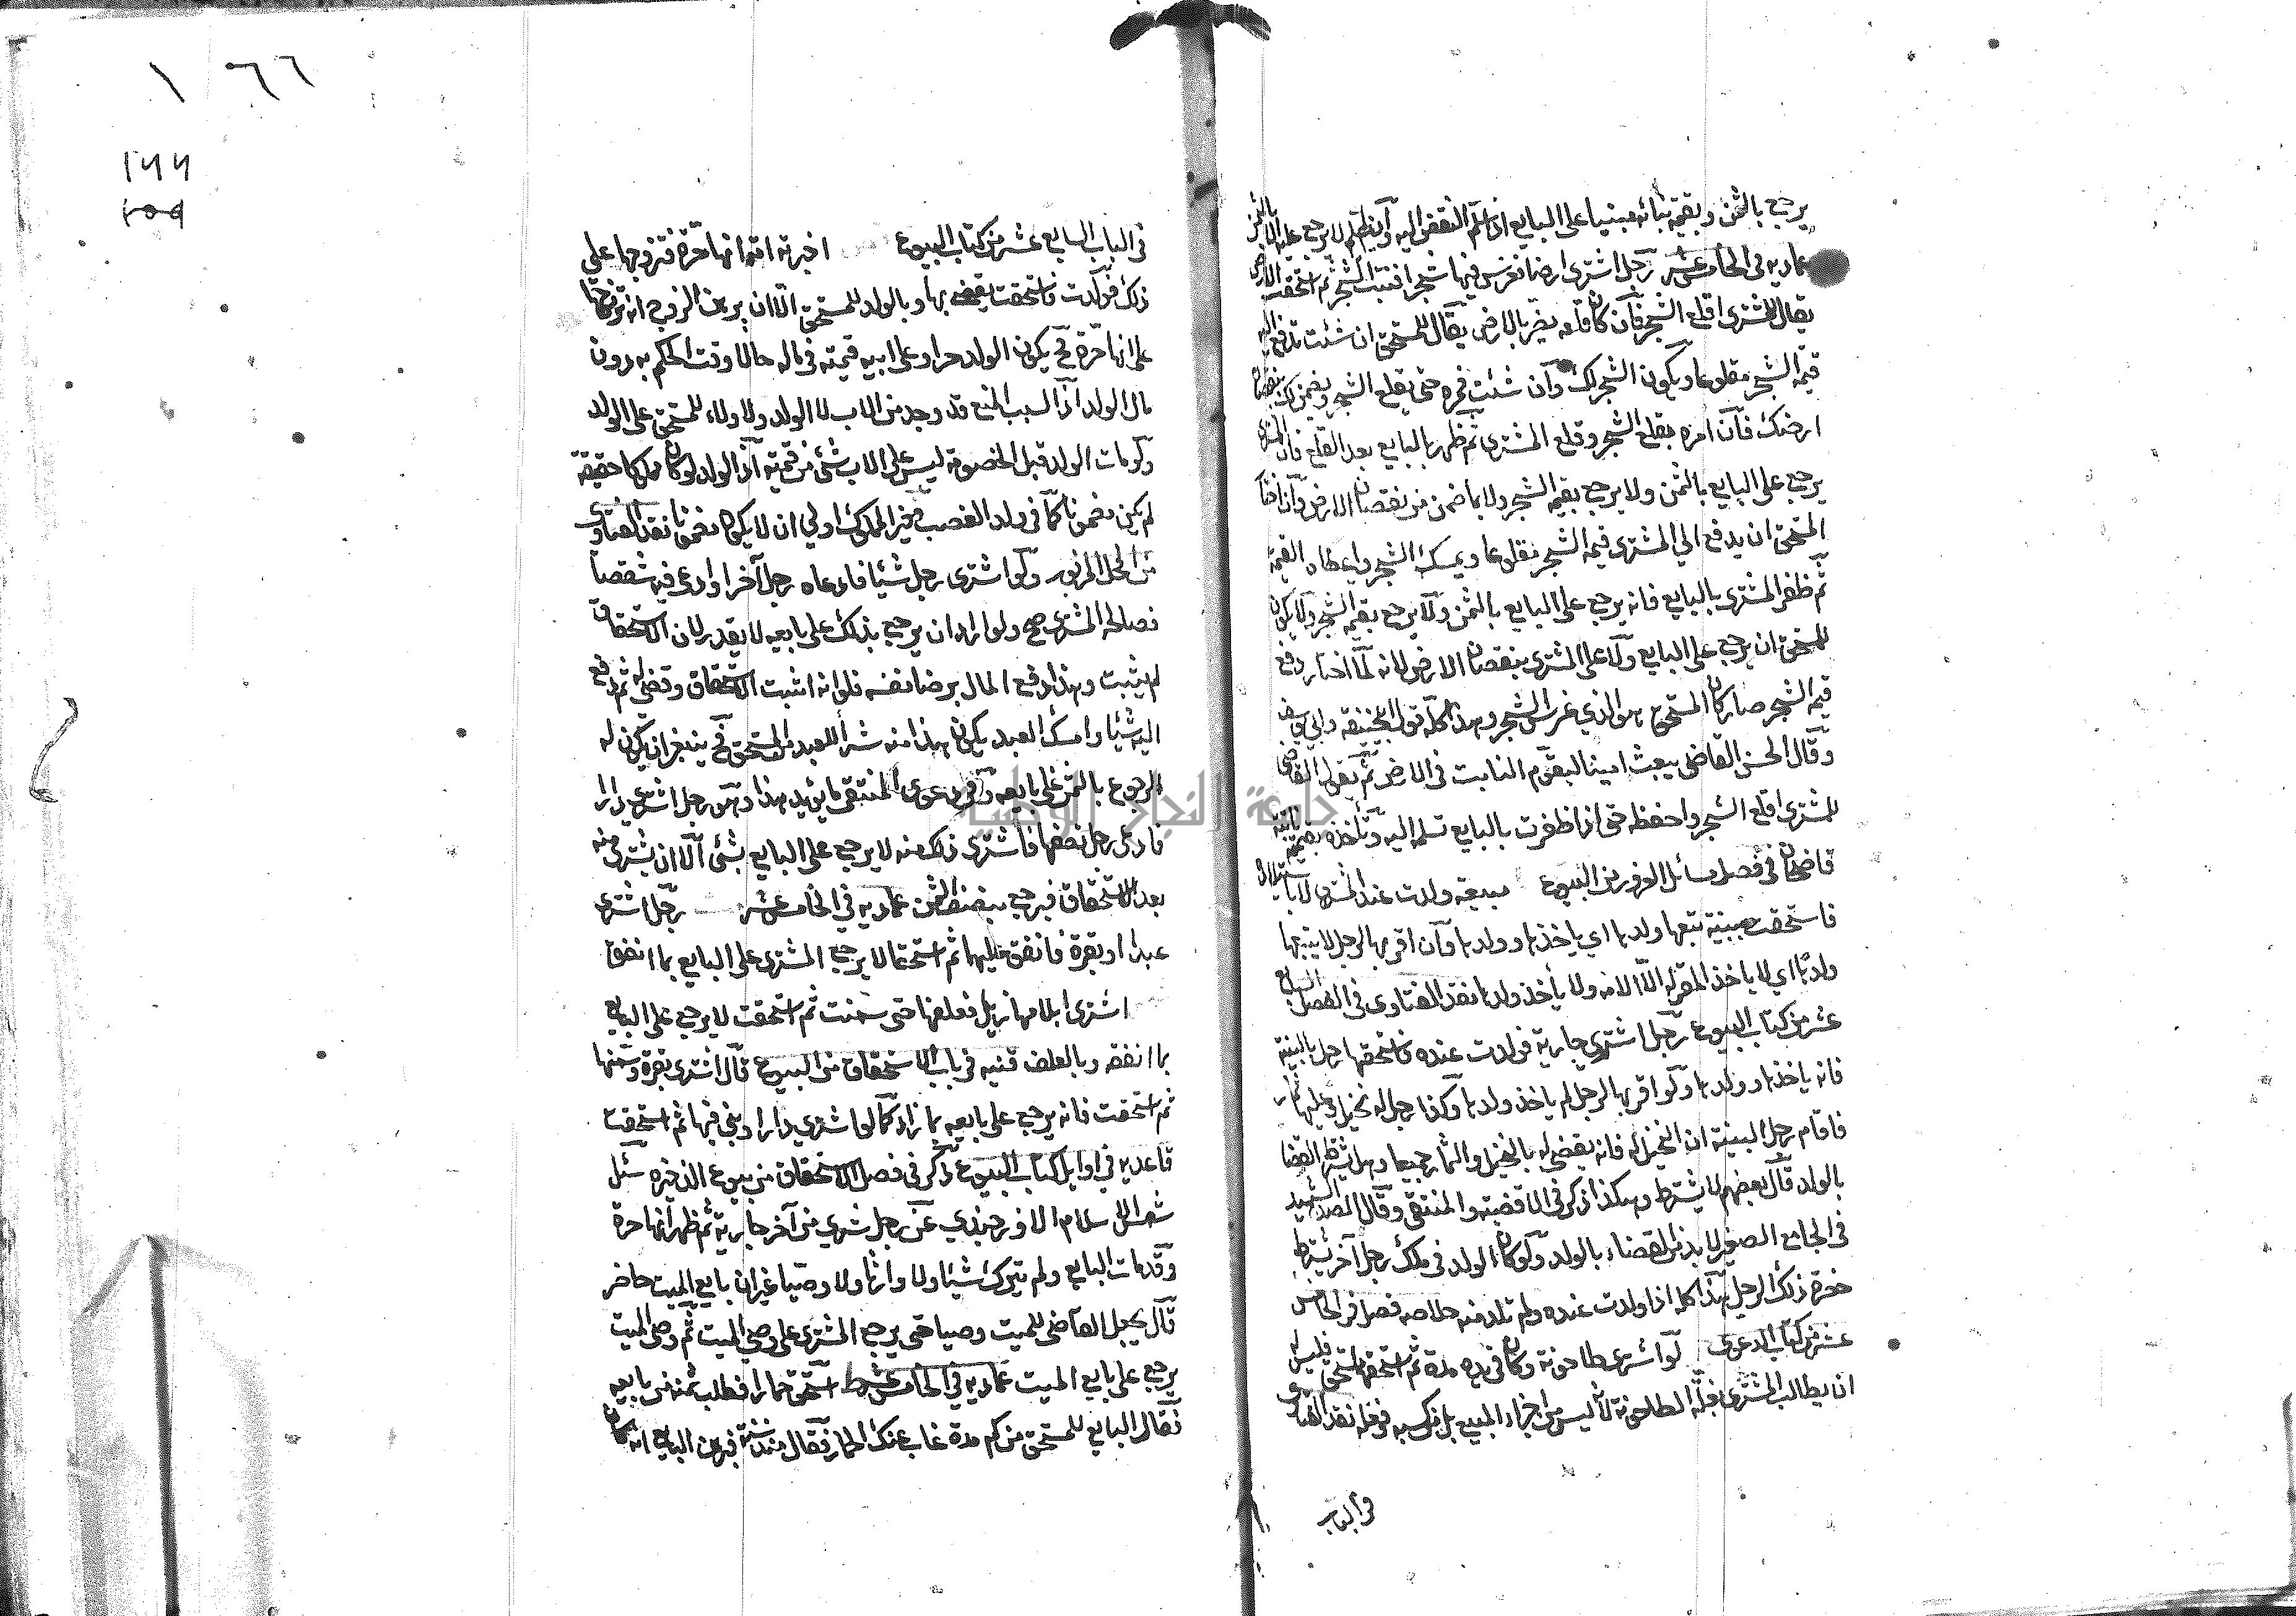 يرجع بالثمن وبقيمة بنائه مبنيا على البايع اذا سلم النقض اليه وان لم يسلم لا يرجع عليه الا بالثمن
عماديه في الخامس عشر رجل اشترى ارضا فغرس فيها شجرا فنبت الشجر ثم استحقت الارض
يقال للمشترى اقلع الشجر فان كان قلعه يضر بالارض يقال للمستحق ان شئت تدفع اليه
قيمة الشجر مقلوعا ويكون الشجر لك وان شئت فمره حتى يقلع الشجر ويضمن لك نقصان
ارضك فان امره بقلع الشجر وقلع المشترى ثم ظهر بالبايع بعد القلع فان المشترى
يرجع على البايع بالثمن ولا يرجع بقيمة الشجر ولا بما ضمن من نقصان الارض وان اختار
المستحق ان يدفع الى المشترى قيمة الشجر مقلوعا ويمسك الشجر واعطاه القيمة
ثم ظفر المشترى بالبايع فانه يرجع على البايع بالثمن ولا يرجع بقيمة الشجر ولا يكون
للمستحق ان يرجع على البايع ولا على المشترى بنقصان الارض لانه لما اختار دفع
قيمة الشجر صار كان المستحق هو الذي غرس الشجر وهذا كله قول ابي حنيفه وابي يوسف
وقال الحسن القاضي يبعث امينا ليقوم النابت في الارض ثم يقول القاضي
للمشترى اقلع الشجر واحفظه حتى اذا ظفرت بالبايع تسلمه اليه وتأخذه بقيمته نابتة
قاضيخان في فصل مسائل الغرور من البيوع مبيعة ولدت عند المشترى لا باستيلاده
فاستحقت ببينة تبعها ولدها اي ياخذها وولدها وان اقر بها لرجل لا يتبعها
ولدها اي لا ياخذ المقر له الا الامة ولا يأخذ ولدها نقد الفتاوى في الفصل السابع
عشر من كتاب البيوع رجل اشترى جارية فولدت عنده فاستحقها رجل بالبينة
فانه ياخذها وولدها ولو اقر بها لرجل لم ياخذ ولدها وكذا رجل له نخيل وعليها ثمار
فاقام رجل البينة ان النخيل له فانه يقضى له بالنخيل والثمار جميعا وهل يشترط القضا
بالولد قال بعضهم لا يشترط وهكذا ذكر في الاقضية والمنتقى وقال الصدر الشهيد
في الجامع الصغير لا بد من القضاء بالولد ولو كان الولد في ملك رجل آخر يشترط
حضرة ذلك الرجل هذا كله اذا ولدت عنده ولم تلد منه خلاصه فصل في الخامس
عشر من كتاب الدعوى لو اشترى طاحونة وكان في يده مدة ثم استحقها مستحق فليس له
ان يطالب المشترى بغلة الطاحونة لأنه ليس من اجزاء المبيع بل من كسبه وفعله نقد الفتاوى
في الباب
١ ٦٦
١٦٦
في الباب السابع عشر من كتاب البيوع اخبرته امة انها حرة فتزوجها على
ذلك فولدت فاستحقت يقضى بها وبالولد للمستحق الا ان يبرهن الزوج انه تزوجها
على انها حرة فح يكون الولد حرا وعلى ابيه قيمته في ماله حالا وقت الحكم به دون
مال الولد اذ السبب المنع قد وجد من الاب لا الولد ولا ولاء للمستحق على الولد
ولو مات الولد قبل الخصومة ليس على الاب شئ من قيمته اذ الولد لو كان ملكا حقيقة
لم يكن مضمونا كما في ولد الغصب فغير المملوك اولى ان لا يكون مضمونا نقد الفتاوى
من المحل المزبور ولو اشترى رجل شيئا فادعاه رجل آخر او ادعى فيه شقصا
فصالحه المشترى صح ولو اراد ان يرجع بذلك على بايعه لا يقدر لان الاستحقاق
لم يثبت وهذا دفع المال برضا نفسه فلو انه اثبت الاستحقاق وقضى له ثم دفع
اليه شيئا وامسك العبد يكون هذا منه شرأ للعبد من المستحق فح ينبغي ان يكون له
الرجوع بالثمن على بايعه وفي دعوى المنتقى ما يؤيد هذا وهو رجل اشترى دارا
فادعى رجل نصفها فاشترى ذلك منه لا يرجع على البايع بشئ الا ان يشترى منه
بعد الاستحقاق فيرجع بنصف الثمن عماديه في الخامس عشر رجل اشترى
عبدا او بقرة فانفق عليهما ثم استحقا لا يرجع المشترى على البايع بما انفق
اشترى ابلا مهازيل فعلفها حتى سمنت ثم استحقت لا يرجع على البايع
بما انفقه وبالعلف قنيه في باب الاستحقاق من البيوع قال اشترى بقرة وسمنها
ثم استحقت فانه يرجع على بايعه بما زاد كما لو اشترى دارا وبنى فيها ثم استحقت
قاعديه في اوايل كتاب البيوع ذكر في فصل الاستحقاق من بيوع الذخيره سئل
شمس الاسلام الاوزجندي عن رجل شرى من آخر جارية ثم ظهر انها حرة
وقد مات البايع ولم يترك شيئا ولا وارثا ولا وصيا غير ان بايع الميت حاضر
قال يجعل القاضي للميت وصيا حتى يرجع المشترى على وصي الميت ثم وصي الميت
يرجع على بايع الميت عماديه في الخامس عشر استحق حمارا فطلب ثمنه من بايعه
فقال البايع للمستحق من كم مدة غاب عنك الحمار فقال منذ سنة فبرهن البايع انه كان
جامعة النجاح الوطنية